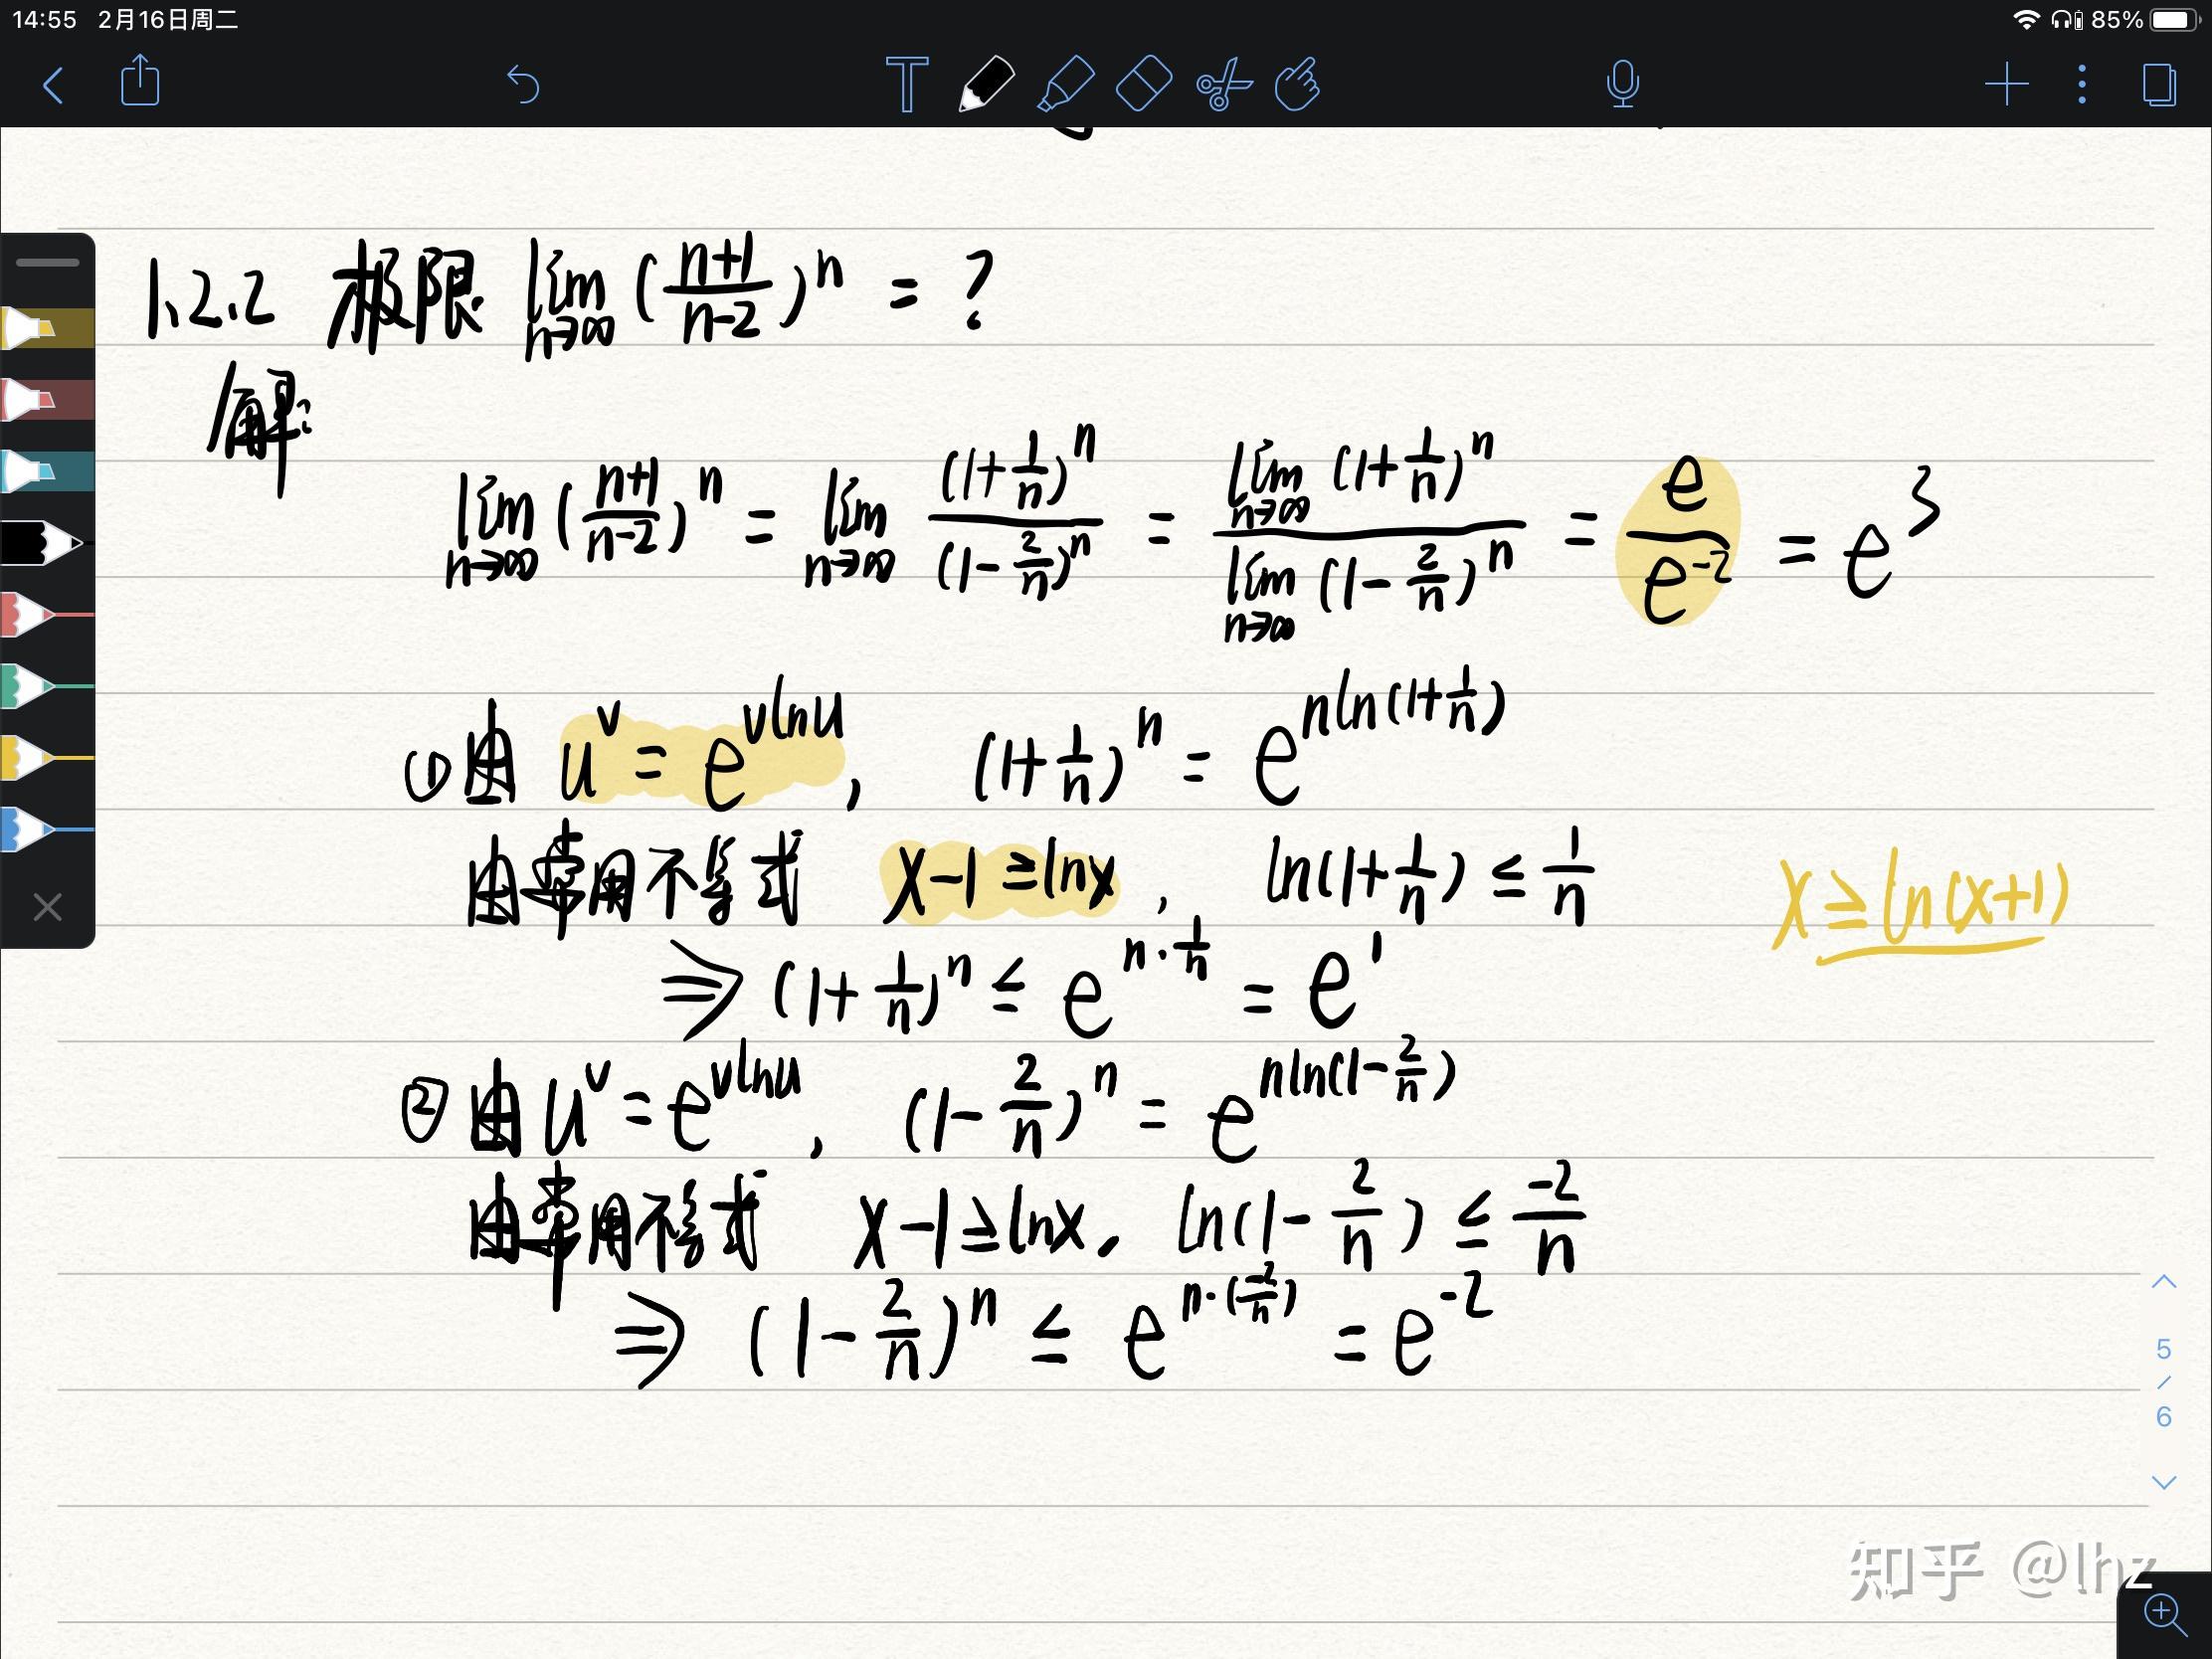 14:55 2月16日周二
85%
1.2.2 极限 lim n→∞ (n+1/n-2)^n = ?
解:
lim n→∞ (n+1/n-2)^n = lim n→∞ (1+1/n)^n / (1-2/n)^n = lim n→∞ (1+1/n)^n / lim n→∞ (1-2/n)^n = e/e^-2 = e^3
(1) 由 u^v = e^vlnu, (1+1/n)^n = e^nln(1+1/n)
由常用不等式 x-1≥lnx, ln(1+1/n) ≤ 1/n
x≥ln(x+1)
⇒ (1+1/n)^n ≤ e^n·1/n = e^1
② 由 u^v = e^vlnu, (1-2/n)^n = e^nln(1-2/n)
由常用不等式 x-1≥lnx, ln(1-2/n) ≤ -2/n
⇒ (1-2/n)^n ≤ e^n·(-2/n) = e^-2
5
/
6
知乎 @lhz